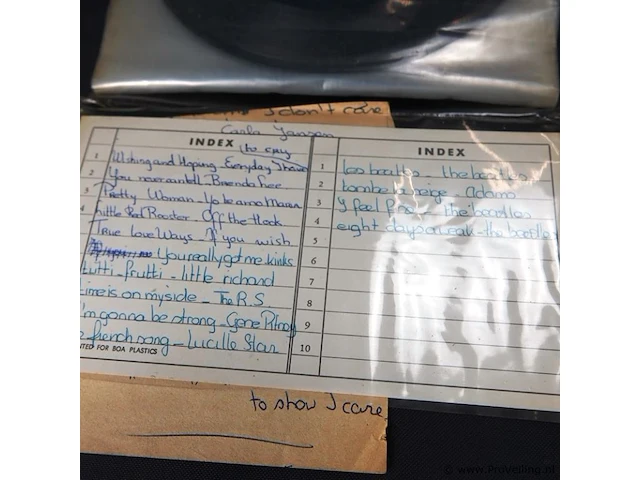 I don't care
Carla Jansen
INDEX (to cry
1 Wishing and Hoping Everyday I have
2 You never can tell. Brenda Lee
3 Pretty Woman
4 Little Red Rooster. Off the Hook
True Love Ways. If you wish
You really got me kinks
tutti-frutti - little richard
time is on my side - The R.S
I'm gonna be strong - Gene Pitney
french song - Lucille Star
FOR BOA PLASTICS
INDEX
1 the beatles
2 tombe la neige - Adamo
3 I feel fine - the beatles
4 eight days a week - the beatles
5
6
7
8
9
10
to show I care
© www.ProVeiling.nl